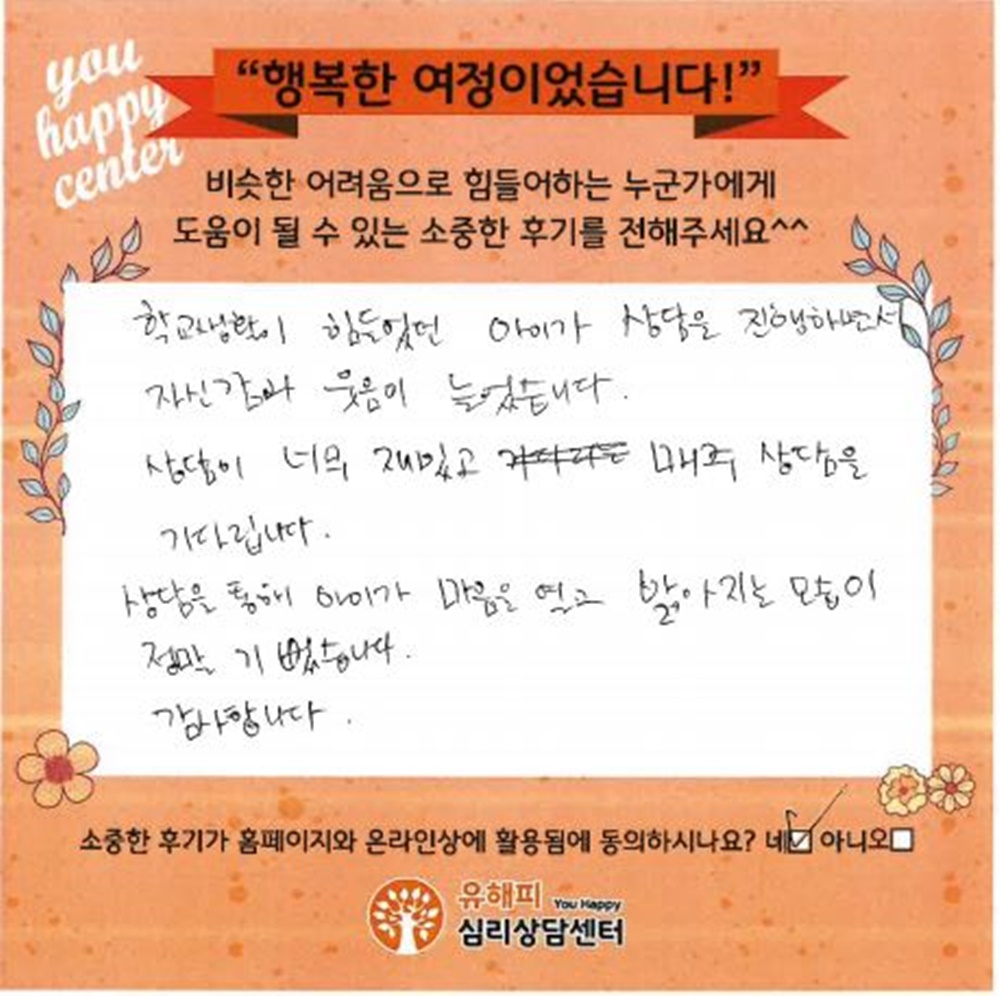 you
happy
center
“행복한 여정이었습니다!”
비슷한 어려움으로 힘들어하는 누군가에게
도움이 될 수 있는 소중한 후기를 전해주세요^^
학교생활이 힘들었던 아이가 상담을 진행하면서
자신감과 웃음이 늘었습니다.
상담이 너무 재밌고 매주 상담을
기다립니다.
상담을 통해 아이가 마음을 열고 밝아지는 모습이
정말 기뻤습니다.
감사합니다.
소중한 후기가 홈페이지와 온라인상에 활용됨에 동의하시나요? 네☑ 아니오□
유해피 You Happy
심리상담센터